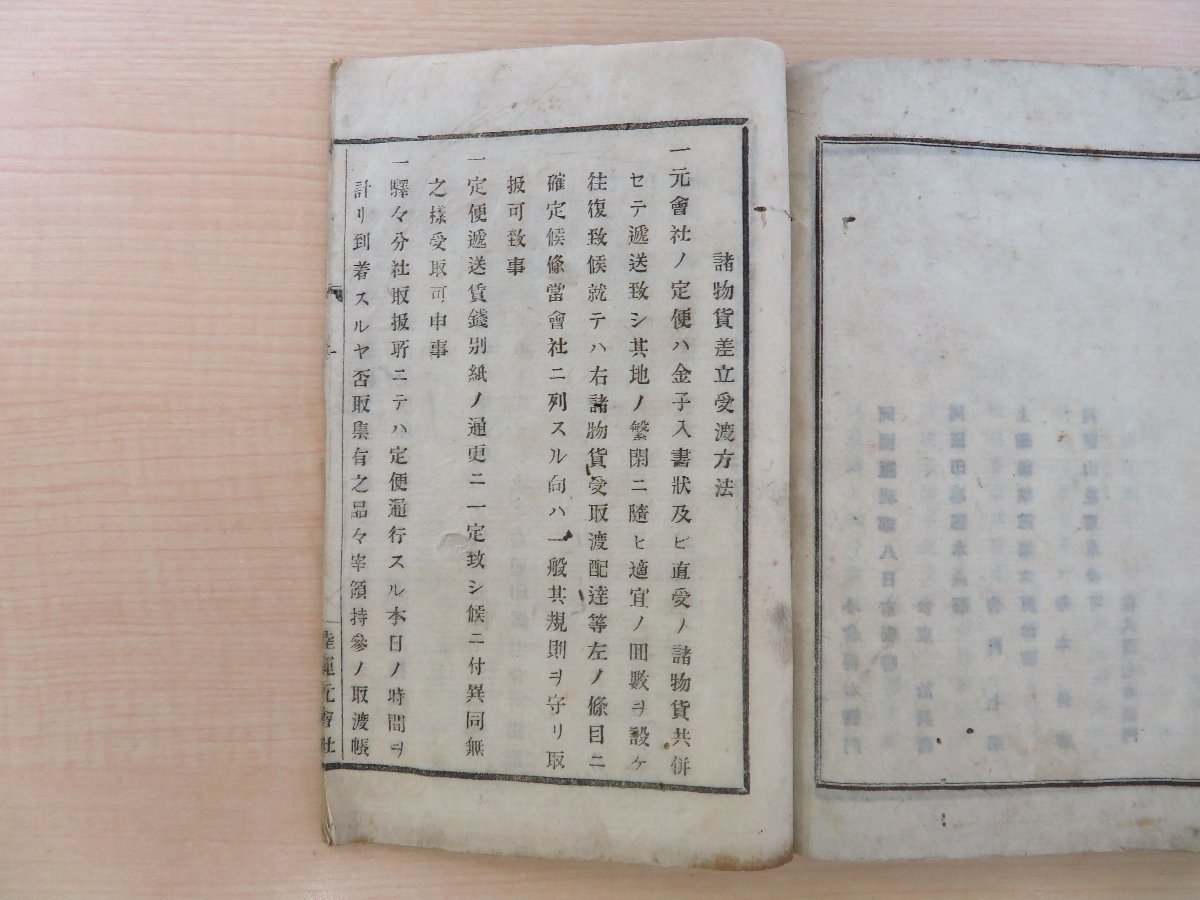 諸物貨差立受渡方法
一元會社ノ定便ハ金子入書狀及ビ直受ノ諸物貨共併
セテ遞送致シ其地ノ繁閑ニ隨ヒ適宜ノ囬數ヲ設ケ
往復致候就テハ右諸物貨受取渡配達等左ノ條目ニ
確定候條當會社ニ列スル向ハ一般其規則ヲ守リ取
扱可致事
一定便遞送賃錢別紙ノ通更ニ一定致シ候ニ付異同無
之樣受取可申事
一驛々分社取扱所ニテハ定便通行スル本日ノ時間ヲ
計リ到着スルヤ否取集有之品々宰領持參ノ取渡帳
陸運元會社